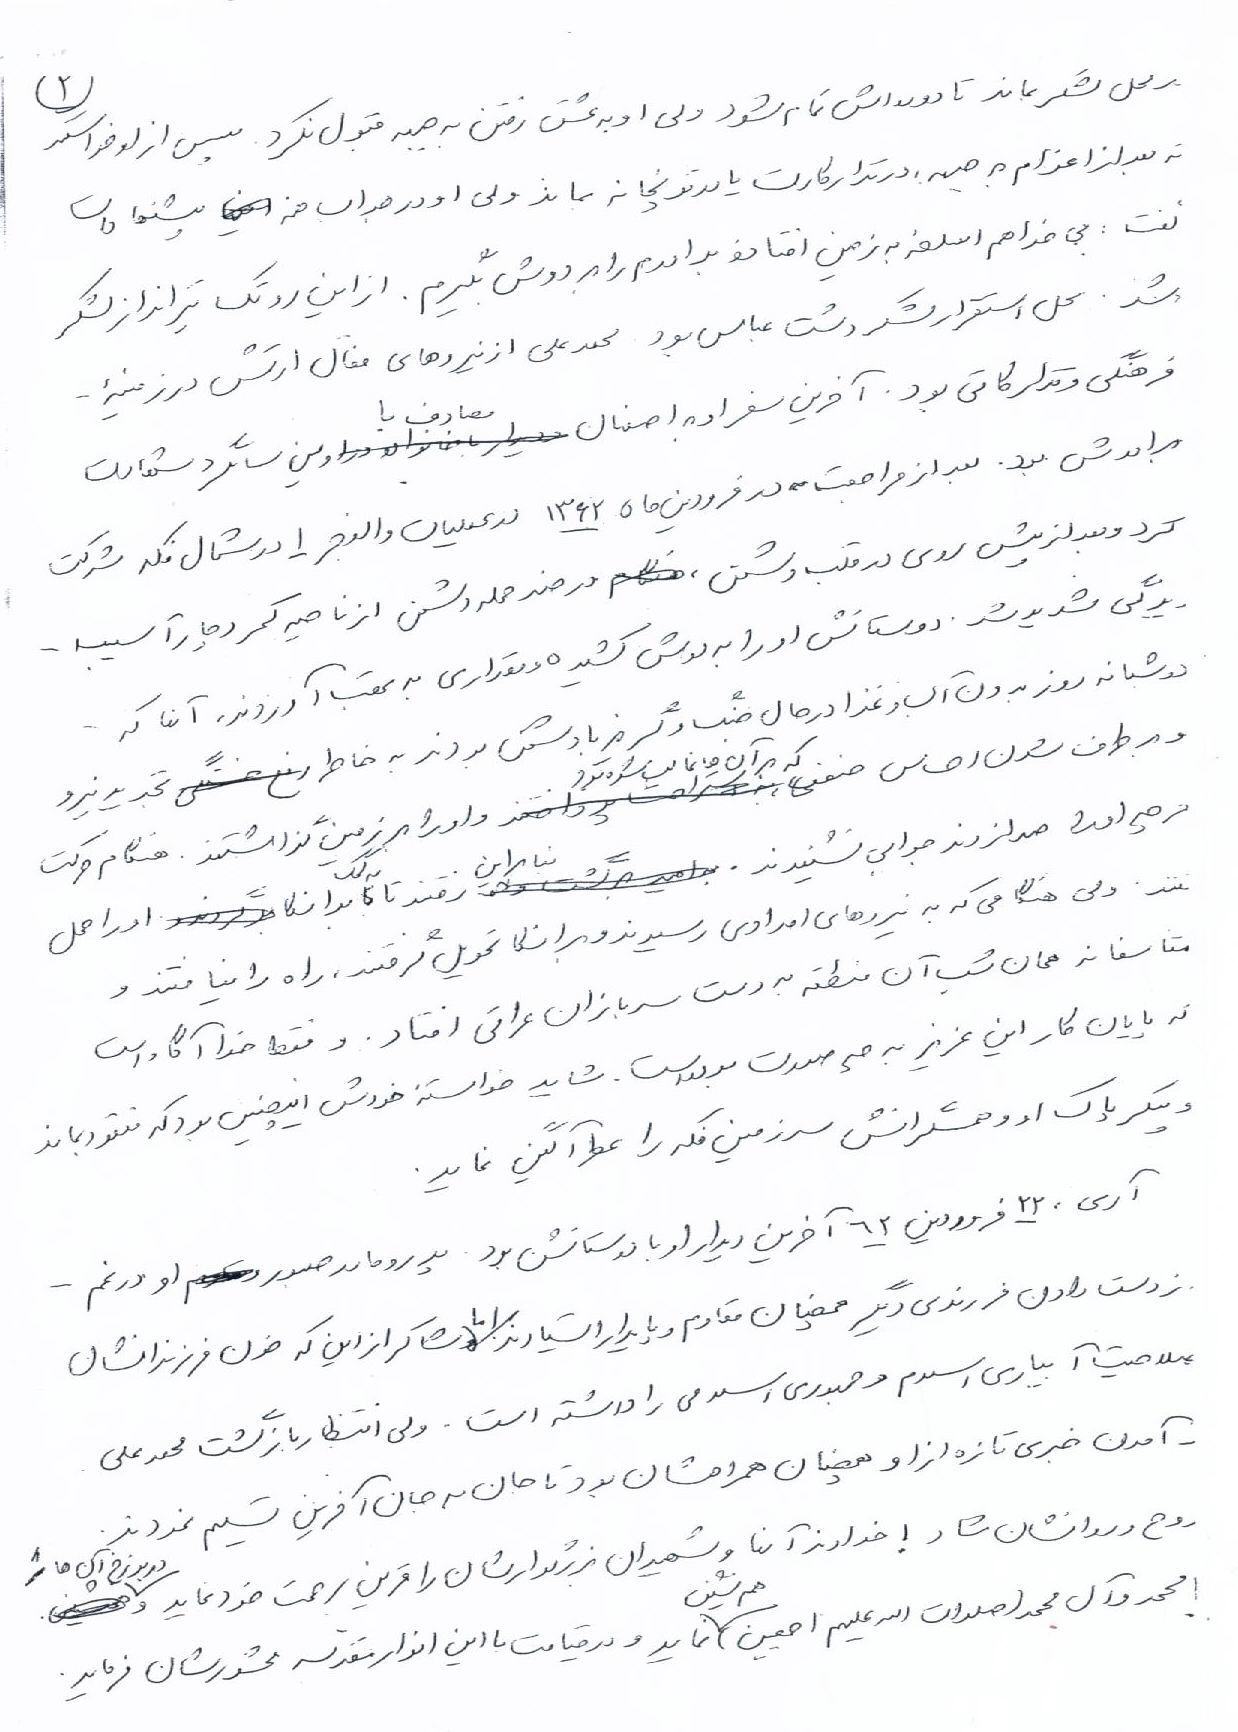 (۲)
در محل لشکر بماند تا دوره‌اش تمام شود ولی او به عشق رفتن به جبهه قبول نکرد. سپس از او خواستند
که بعد از اعزام به جبهه، در تدارکات یا در توپخانه بماند ولی او در جواب همه پیشنهادات
گفت: می‌خواهم اسلحهٔ به زمین افتادهٔ برادرم را بر دوش بگیرم. از این رو تک تیرانداز لشکر
شد. محل استقرار لشکر دشت عباس بود. محمدعلی از نیروهای فعال ارتش در زمینهٔ -
فرهنگی و تدارکاتی بود. آخرین سفر او به اصفهان مصادف با اولین سالگرد شهادت
برادرش بود. بعد از مراجعت در فروردین ماه ۱۳۶۲ در عملیات والفجر ۱ در شمال فکه شرکت
کرد و بعد از پیش روی در قلب دشمن، در ضد حمله دشمن از ناحیه کمر دچار آسیب -
دیدگی شدید شد. دوستانش او را به دوش کشیده و مقداری به عقب آوردند، آنها که -
دو شبانه روز بدون آب و غذا در حال جنگ و گریز با دشمن بودند به خاطر تجدید نیرو
و برطرف شدن احساس ضعفی که بر آن‌ها غالب شده بود او را بر زمین گذاشتند. هنگام حرکت
هر چه او را صدا زدند جوابی نشنیدند. بنابراین رفتند تا به کمک برانکارد او را حمل
کنند. ولی هنگامی که به نیروهای امدادی رسیدند و برانکارد تحویل گرفتند، راه را نیافتند و
متأسفانه همان شب آن منطقه به دست سربازان عراقی افتاد. و فقط خدا آگاه است
که پایان کار این عزیز به چه صورت بوده است. شاید خواستهٔ خودش اینچنین بود که مفقود بماند
و پیکر پاک او و همسنگرانش سرزمین فکه را عطرآگین نماید.
آری، ۲۲ فروردین ۶۲ آخرین دیدار او با دوستانش بود. پدر و مادر صبور او در غم -
از دست دادن فرزندی دیگر همچنان مقاوم و پایدار ایستادند اما شاکر از این که خون فرزندانشان
صلاحیت آبیاری اسلام و جمهوری اسلامی را داشته است. ولی انتظار بازگشت محمدعلی
یا آمدن خبری تازه از او همچنان همراهشان بود تا جان به جان آفرین تسلیم نمودند.
روح و روانشان شاد! خداوند آنها و شهیدان بزرگوارشان را قرین رحمت خود نماید و در برزخ آن‌ها را
با محمد و آل محمد (صلوات الله علیهم اجمعین) هم‌نشین نماید و در قیامت با این انوار مقدسه محشورشان فرماید.